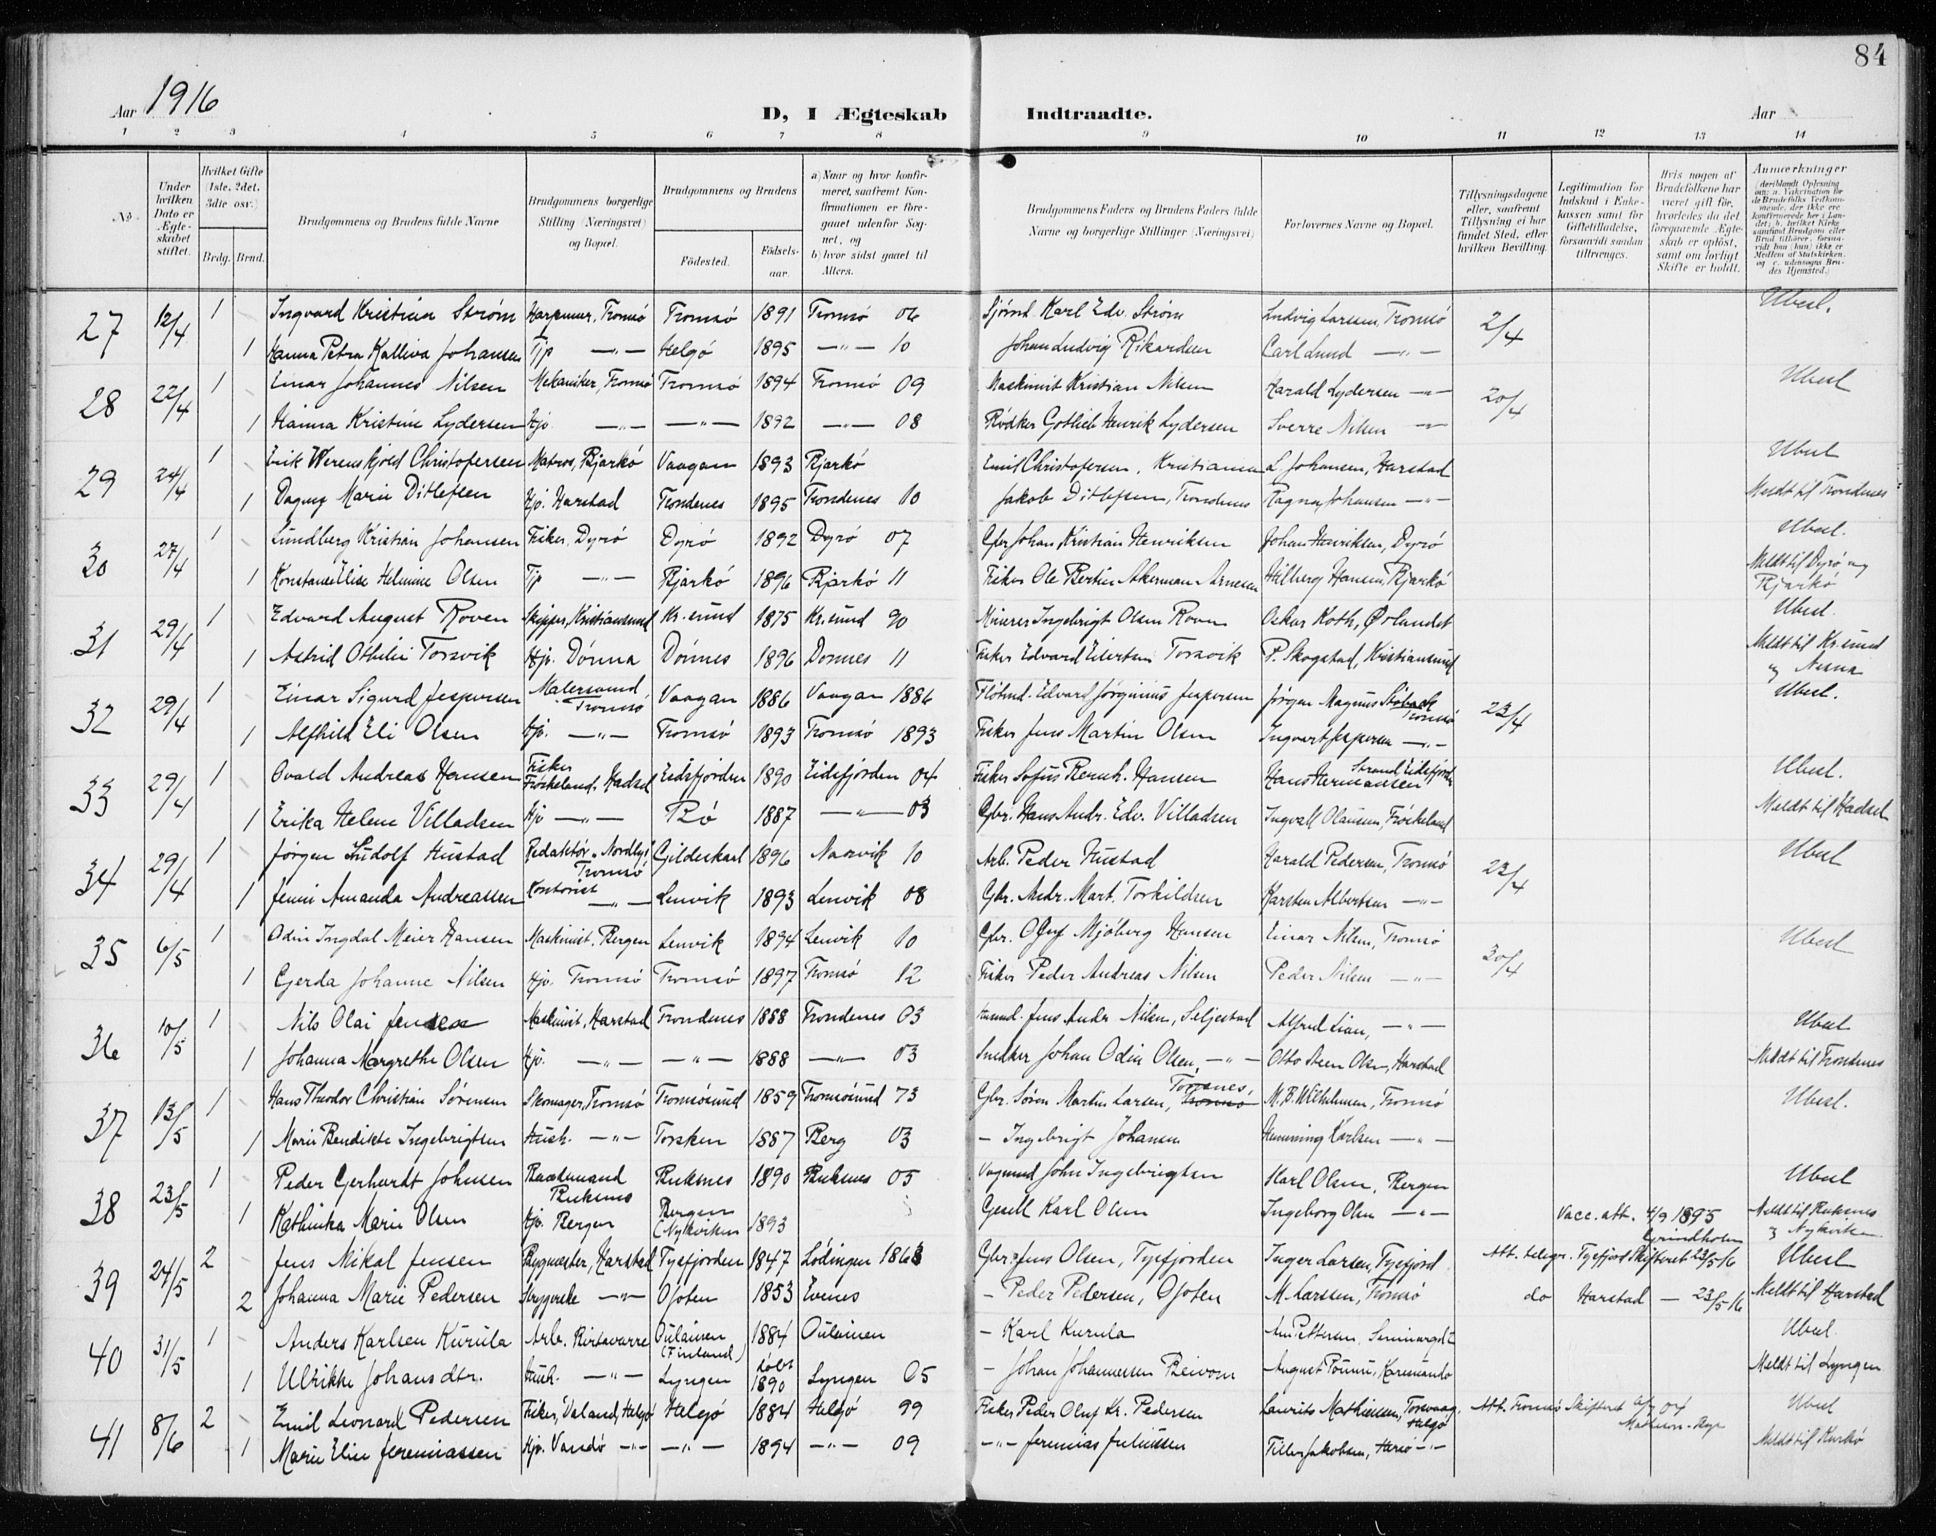 84
Aar 1916
D, I Ægteskab Indtraadte.
Aar
1 2 3 4 5 6 7 8 9 10 11 12 13 14
No.
Under hvilken Dato er Ægteskabet stiftet.
Hvilket Gifte (1ste, 2det, 3die osv.)
Brdg. Brud.
Brudgommens og Brudens fulde Navne
Brudgommens borgerlige Stilling (Næringsvei) og Bopæl.
Brudgommens og Brudens
Fødested. Fødselsaar.
a) Naar og hvor konfirmeret, saafremt Konfirmationen er foregaaet udenfor Sognet, og b) hvor sidst gaaet til Alters.
Brudgommens Faders og Brudens Faders fulde Navne og borgerlige Stillinger (Næringsvei)
Forlovernes Navne og Bopæl.
Tillysningsdagene eller, saafremt Tillysning ei har fundet Sted, efter hvilken Bevilling.
Legitimation for Indskud i Enkekassen samt for Giftetilladelse, forsaavidt saadan tiltrænges.
Hvis nogen af Brudefolkene har været gift før, hvorledes da det foregaaende Ægteskab er opløst, samt om lovligt Skifte er holdt.
Anmærkninger
27 12/4 1 Ingvard Kristian Strøm Tromsø Tromsø 1891 Tromsø 06 Karl Edv. Strøm Ludvig Larssen, Tromsø 2/4 Ubesl.
1 Hanna Petra Kalliva Johansen Tjp —"— Helgö 1895 —"— 10 Johan Ludvig Rikardsen Carl Lund —"—
28 22/4 1 Einar Johannes Nilsen Mekaniker, Tromsø Tromsø 1894 Tromsø 09 Maskinist Kristian Nilsen Harald Lydersen —"— 20/4 Ubesl
1 Hanna Kristine Lydersen Hjv. —"— —"— 1892 —"— 08 Rødker Gotlieb Henrik Lydersen Sverre Nilsen —"—
29 24/4 1 Erik Werenskjold Christofersen Matros, Bjarkö Vaagan 1893 Bjarkö Emil Christofersen, Kristiansun L. Johansen, Harstad Ubesl
1 Dagny Marie Ditlefsen Hjv. Harstad Trondenes 1895 Trondenes 10 Jakob Ditlefsen, Trondenes Ragna Johansen —"— Meldt til Trondenes
30 27/4 1 Lundberg Kristian Johansen Fisker, Dyrö Dyrö 1892 Dyrö 07 Gbr Johan Kristian Henriksen Johan Henriksen, Dyrö Ubesl.
1 Konstanse Elise Helmine Olsen Tjp —"— Bjarkö 1896 Bjarkö 11 Fisker Ole Bertin Akerman Arnesen Hilberg Hansen, Bjarkö Meldt til Dyrö og Bjarkö
31 29/4 1 Edvard August Roven Skipper, Kristiansund Kr. sund 1875 Kr. sund 90 Murer Ingebrigt Olsen Roven Oskar Roth, Ørlandet Ubesl.
1 Astrid Othilie Torsvik Hjv. Dönna Dönnes 1896 Dönnes 11 Fisker Edvard Eilertsen Torsvik P. Skogstad, Kristiansund Meldt til Kr. sund og Nesna
32 29/4 1 Einar Sigurd Jespersen Malersvend, Tromsø Vaagan 1886 Vaagan 1886 Fløtmd. Edvard Jørginius Jespersen Jørgen Magnus Stöback Tromsø 23/4 Ubesl.
1 Alfhild Eli Olsen Hjv. —"— Tromsö 1893 Tromsö 1893 Fisker Jens Martin Olsen Ingvart Jespersen —"—
33 29/4 1 Ovald Andreas Hansen Fisker Frøkeland, Hadsel Eidsfjorden 1890 Eidsfjorden 04 Fisker Sofus Bernh. Hansen Hans Hermansen Strand Eidsfjorden Ubesl.
1 Erika Helene Villadsen Hjv —"— Bö 1887 —"— 03 Gbr. Hans Andr. Edv. Villadsen Ingvall Olausen, Frøkeland Meldt til Hadsel
34 29/4 1 Jørgen Ludolf Hustad Redaktør "Nordlys" Tromsø Gildeskaal 1896 Narvik 10 Arb. Peder Hustad Harald Pedersen, Tromsø 23/4 Ubesl
1 Jenni Amanda Andreassen Kontorist —"— Lenvik 1893 Lenvik 08 Gbr. Andr. Mart. Torkildsen Karsten Albertsen —"—
35 6/5 1 Odin Ingdal Meier Hansen Maskinist, Bergen Lenvik 1894 Lenvik 10 Gbr. Oluf Mjöberg Hansen Einar Nilsen, Tromsö 30/4 Ubesl
1 Gjerda Johanne Nilsen Hjv. Tromsö Tromsö 1897 Tromsö 12 Fisker Peder Andreas Nilsen Peder Nilsen —"—
36 10/5 1 Nils Olai Jensen Maskinist, Harstad Trondenes 1888 Trondenes 03 Jens Andr Nilsen, Seljestad Alfred Lian, —"— Ubesl
1 Johanna Margrethe Olsen Hjv. —"— —"— 1888 —"— 03 Snedker Johan Odin Olsen, —"— Otto Steen Olsen, Harstad Meldt til Trondenes
37 13/5 1 Hans Theodor Christian Sörensen Skomager, Tromsö Tromsösund 1859 Tromsösund 73 Gbr. Sören Martin Larsen, Torsnes, Tromsö M. B. Wilhelmsen, Tromsö Ubesl.
1 Marie Bendikte Ingebrigtsen Hush. —"— Torsken 1887 Berg 03 — Ingebrigt Johansen Henning Karlsen —"—
38 23/5 1 Peder Gerhardt Johnsen Baadsmand Buksnes Buksnes 1890 Buksnes 05 Vognmd John Ingebrigtsen Karl Olsen, Bergen Ubesl
1 Kathinka Marie Olsen Hjv. Bergen Bergen (Nykirken 1893 Gesell Karl Olsen Ingeborg Olsen —"— Vacc. att. 4/9 1895 Grindholm Meldt til Buksnes og Nykirken
39 24/5 2 Jens Mikal Jensen Bygmester, Harstad Tysfjorden 1847 Lödingen 1863 Gbr. Jens Olsen, Tysfjorden Inger Larsen, Tysfjord Att. telegr. Tysfjord Skifteret 23/5 16 Ubesl
2 Johanna Marie Pedersen Strygerske —"— Ofoten 1853 Evenes — Peder Pedersen, Ofoten M. Larssen, Tromsø do Harstad — 23/5 16 Meldt til Harstad
40 31/5 1 Anders Karlsen Kurula Arb. Birtavarre Oulainen (Finland) 1884 Oulainen — Karl Kurula Am Pettersen, Seminargdt Ubesl.
1 Ulrikke Johansdtr. Hush. —"— Lyngen døbt 1890 Lyngen 05 — Johan Johannesen Beivoin August Meldt til Lyngen
41 8/6 2 Emil Leonard Pedersen Fisker, Helgö Helgö 1884 Helgö 99 Fisker Peder Oluf Kr. Pedersen Laurits Mathiessen, Torsvaag, Helgö Att. Tromsø Skifteret Ubesl
1 Marie Eline Jeremiassen Hjv. Vandö —"— —"— 1894 —"— 09 —"— Jeremias Juliussen Jakobsen, —"— Meldt til Karlsö